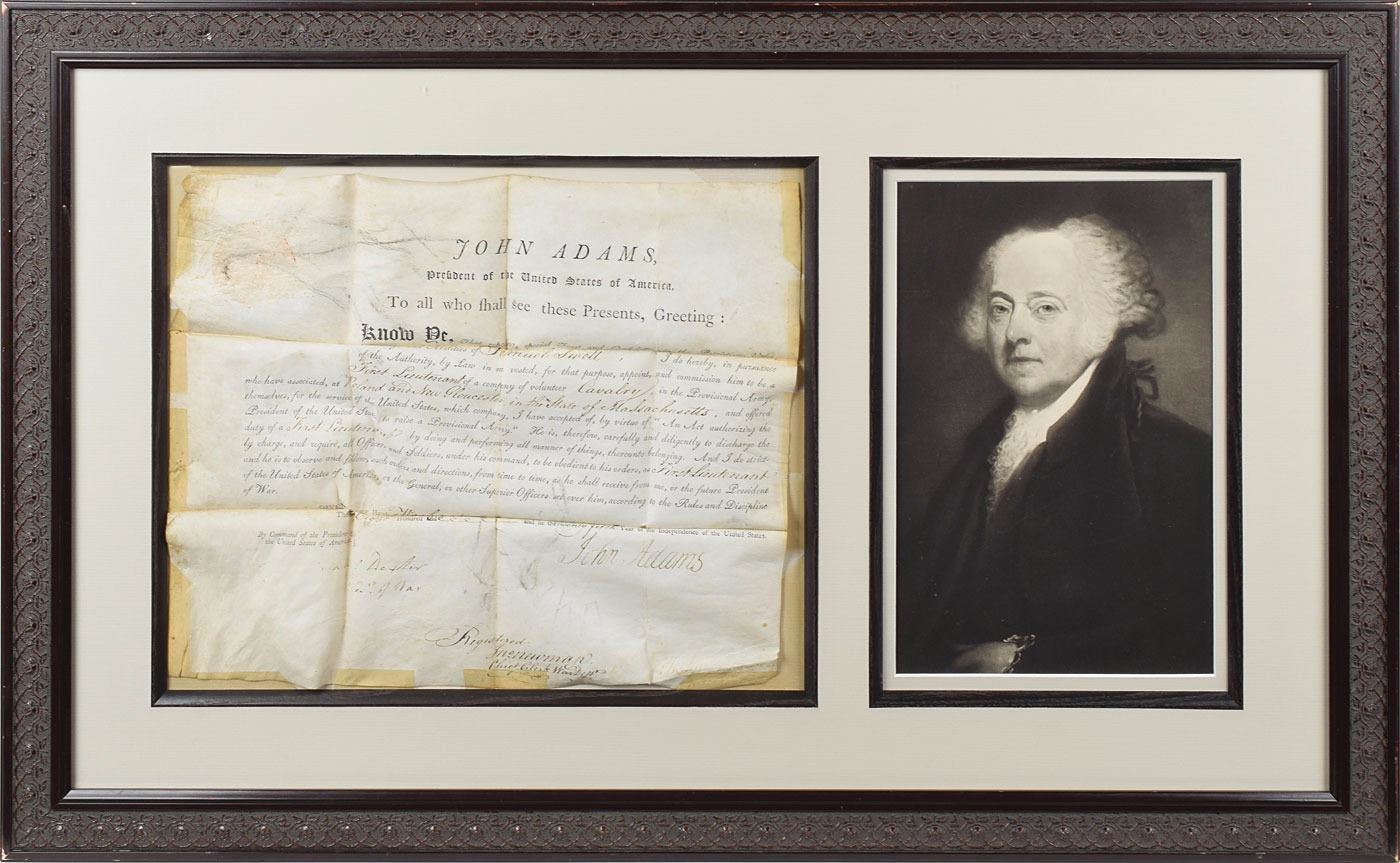 JOHN ADAMS,
President of the United States of America,
To all who shall see these Presents, Greeting:
Know Ye,
of Samuel I do hereby, in pursuance
of the Authority, by Law in me vested, for that purpose, appoint, and commission him to be a
First Lieutenant of a company of volunteer Cavalry in the Provisional Army,
who have associated, at Poland and New Gloucester in the State of Massachusetts, and offered
themselves, for the service of the United States, which company, I have accepted of, by virtue of "An Act authorizing the
President of the United States to raise a Provisional Army." He is, therefore, carefully and diligently to discharge the
duty of a First Lieutenant by doing and performing all manner of things, thereunto belonging. And I do strict-
ly charge, and require, all Officers, and Soldiers, under his command, to be obedient to his orders, as First Lieutenant
and he is to observe and follow, such orders and directions, from time to time, as he shall receive from me, or the future President
of the United States of America, or the General, or other Superior Officers set over him, according to the Rules and Discipline
of War.
Hundred and and in the twenty fifth Year of the Independence of the United States.
By Command of the President of
the United States of America
John Adams
Dexter
of War
Registered
Jno Newman
Chief Clerk War Dept